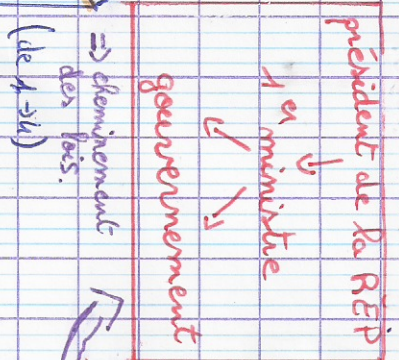 président de la RÉP
↓
1 er ministre
↙ ↘
gouvernement
=> cheminement
des lois.
(de 1 → 4)